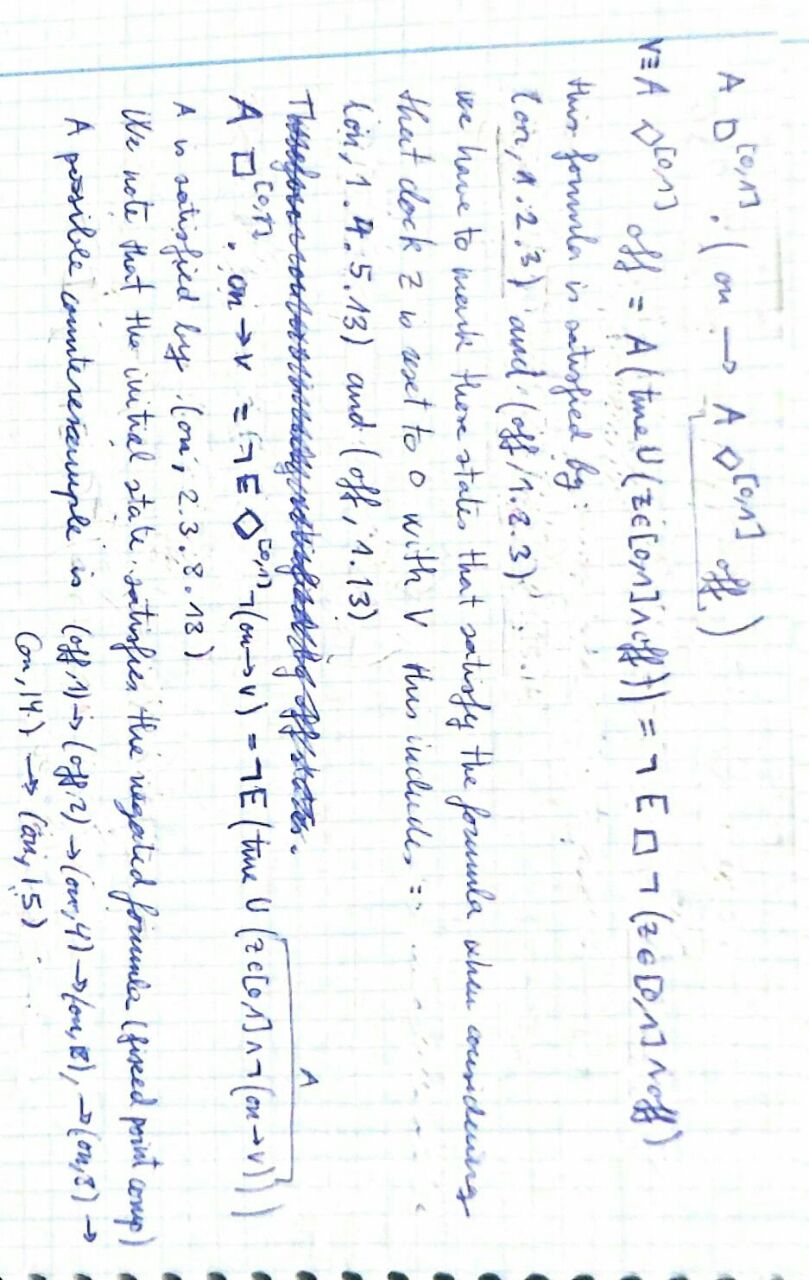 A □^[0,1]. (on → A ◇^[0,1] off)
V≡A ◇^[0,1] off = A(true U (z∈[0,1]∧off)) = ¬ E □ ¬ (z∈[0,1]∧off)
this formula is satisfied by:
(on, 1.2.3) and (off, 1.2.3)
we have to mark those states that satisfy the formula when considering
that clock z is reset to 0 with V this includes:
(on, 1.4.5.13) and (off, 1.13)
A □^[0,1]. on→V = ¬E ◇^[0,1] ¬(on→V) = ¬E(true U (z∈[0,1]∧¬(on→V)))
A
A is satisfied by (on, 2.3.8.13)
We note that the initial state satisfies the negated formula (fixed point comp)
A possible counterexample is (off, 1) → (off, 2) → (on, 4) → (on, 8), → (on, 3) →
(on, 14.) → (on, 15)